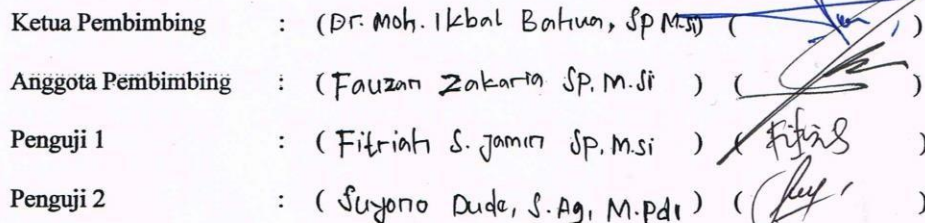 Ketua Pembimbing : (Dr. Moh. Ikbal Bahua, SP M.si) ( )
Anggota Pembimbing : (Fauzan Zakaria SP. M.Si ) ( )
Penguji 1 : (Fitriah S. Jamin SP. M.si ) ( )
Penguji 2 : (Suyono Dude, S.Ag, M.PdI) ( )